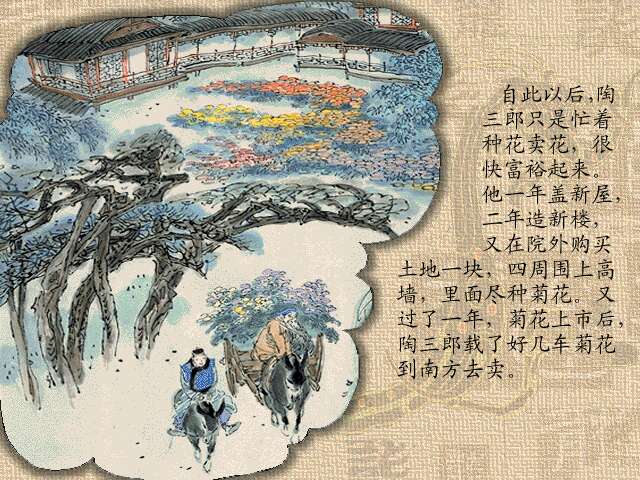 自此以后,陶
三郎只是忙着
种花卖花，很
快富裕起来。
他一年盖新屋，
二年造新楼，
又在院外购买
土地一块，四周围上高
墙，里面尽种菊花。又
过了一年，菊花上市后，
陶三郎载了好几车菊花
到南方去卖。